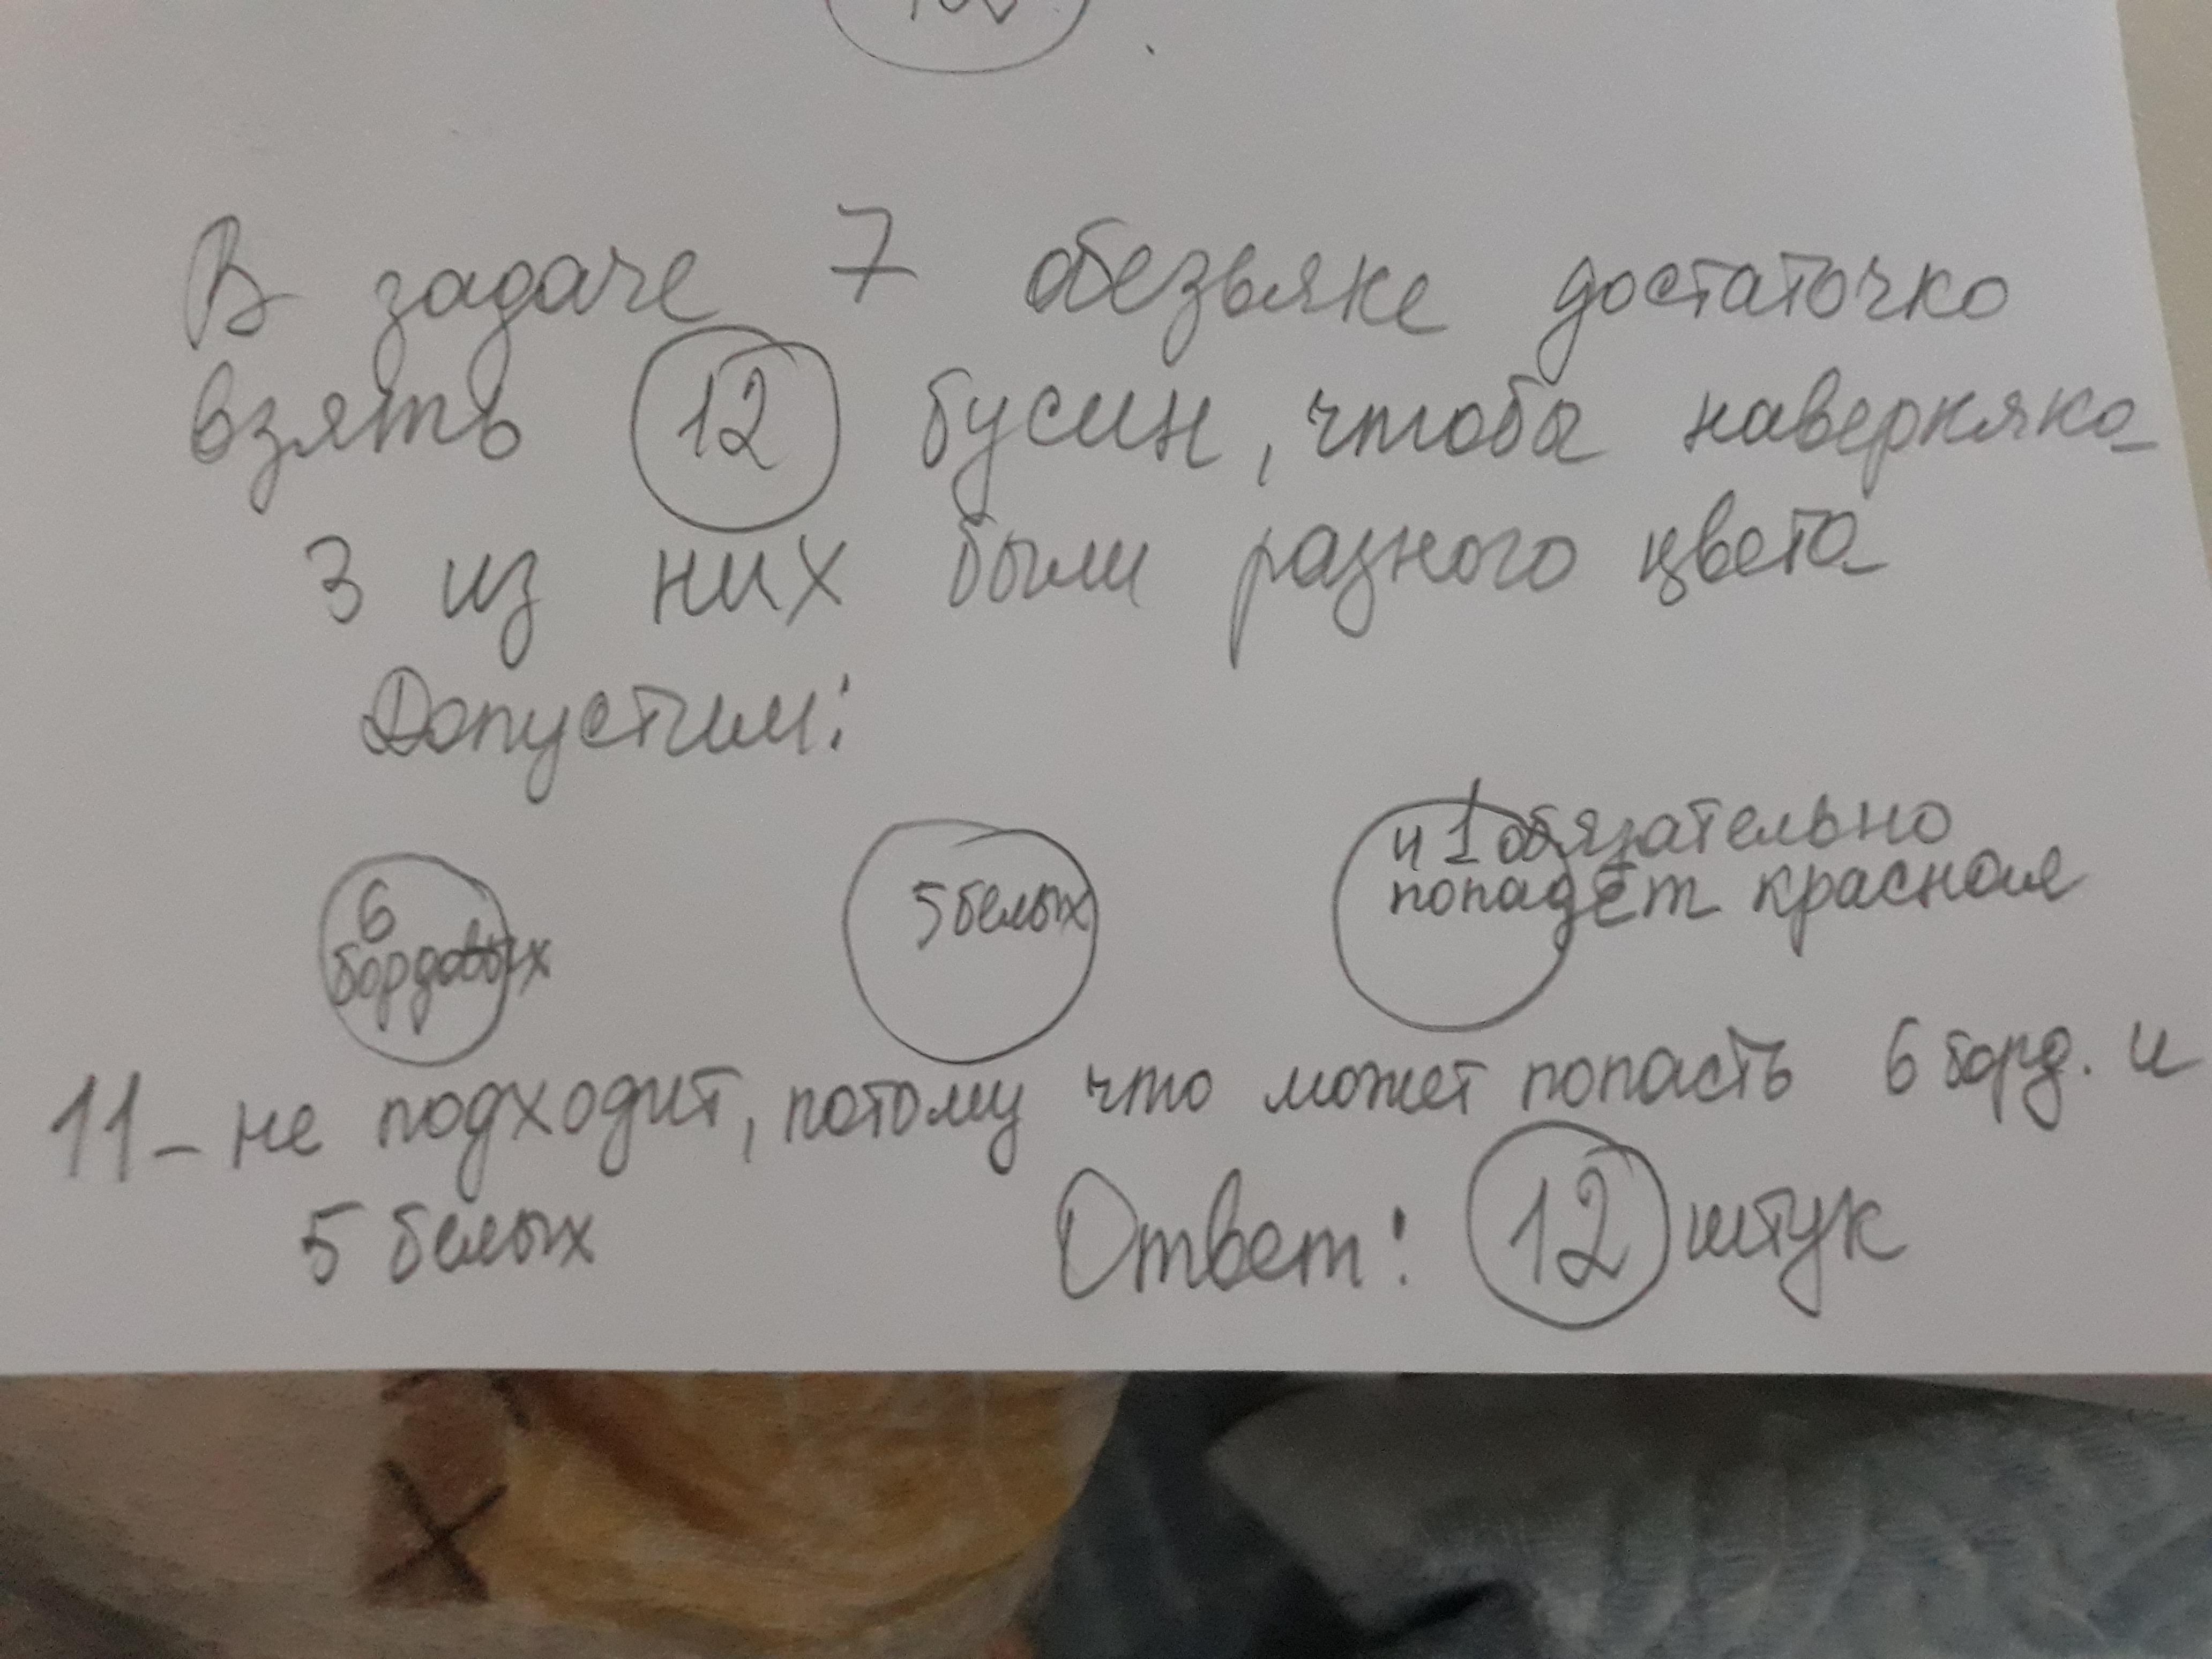 В задаче 7 обезьяне достаточно
взять 12 бусин, чтобы наверняка
3 из них были разного цвета
Допустим:
6 бордовых
5 белых
и 1 обязательно
попадёт красная
11 - не подходит, потому что может попасть 6 борд. и
5 белых
Ответ: 12 штук